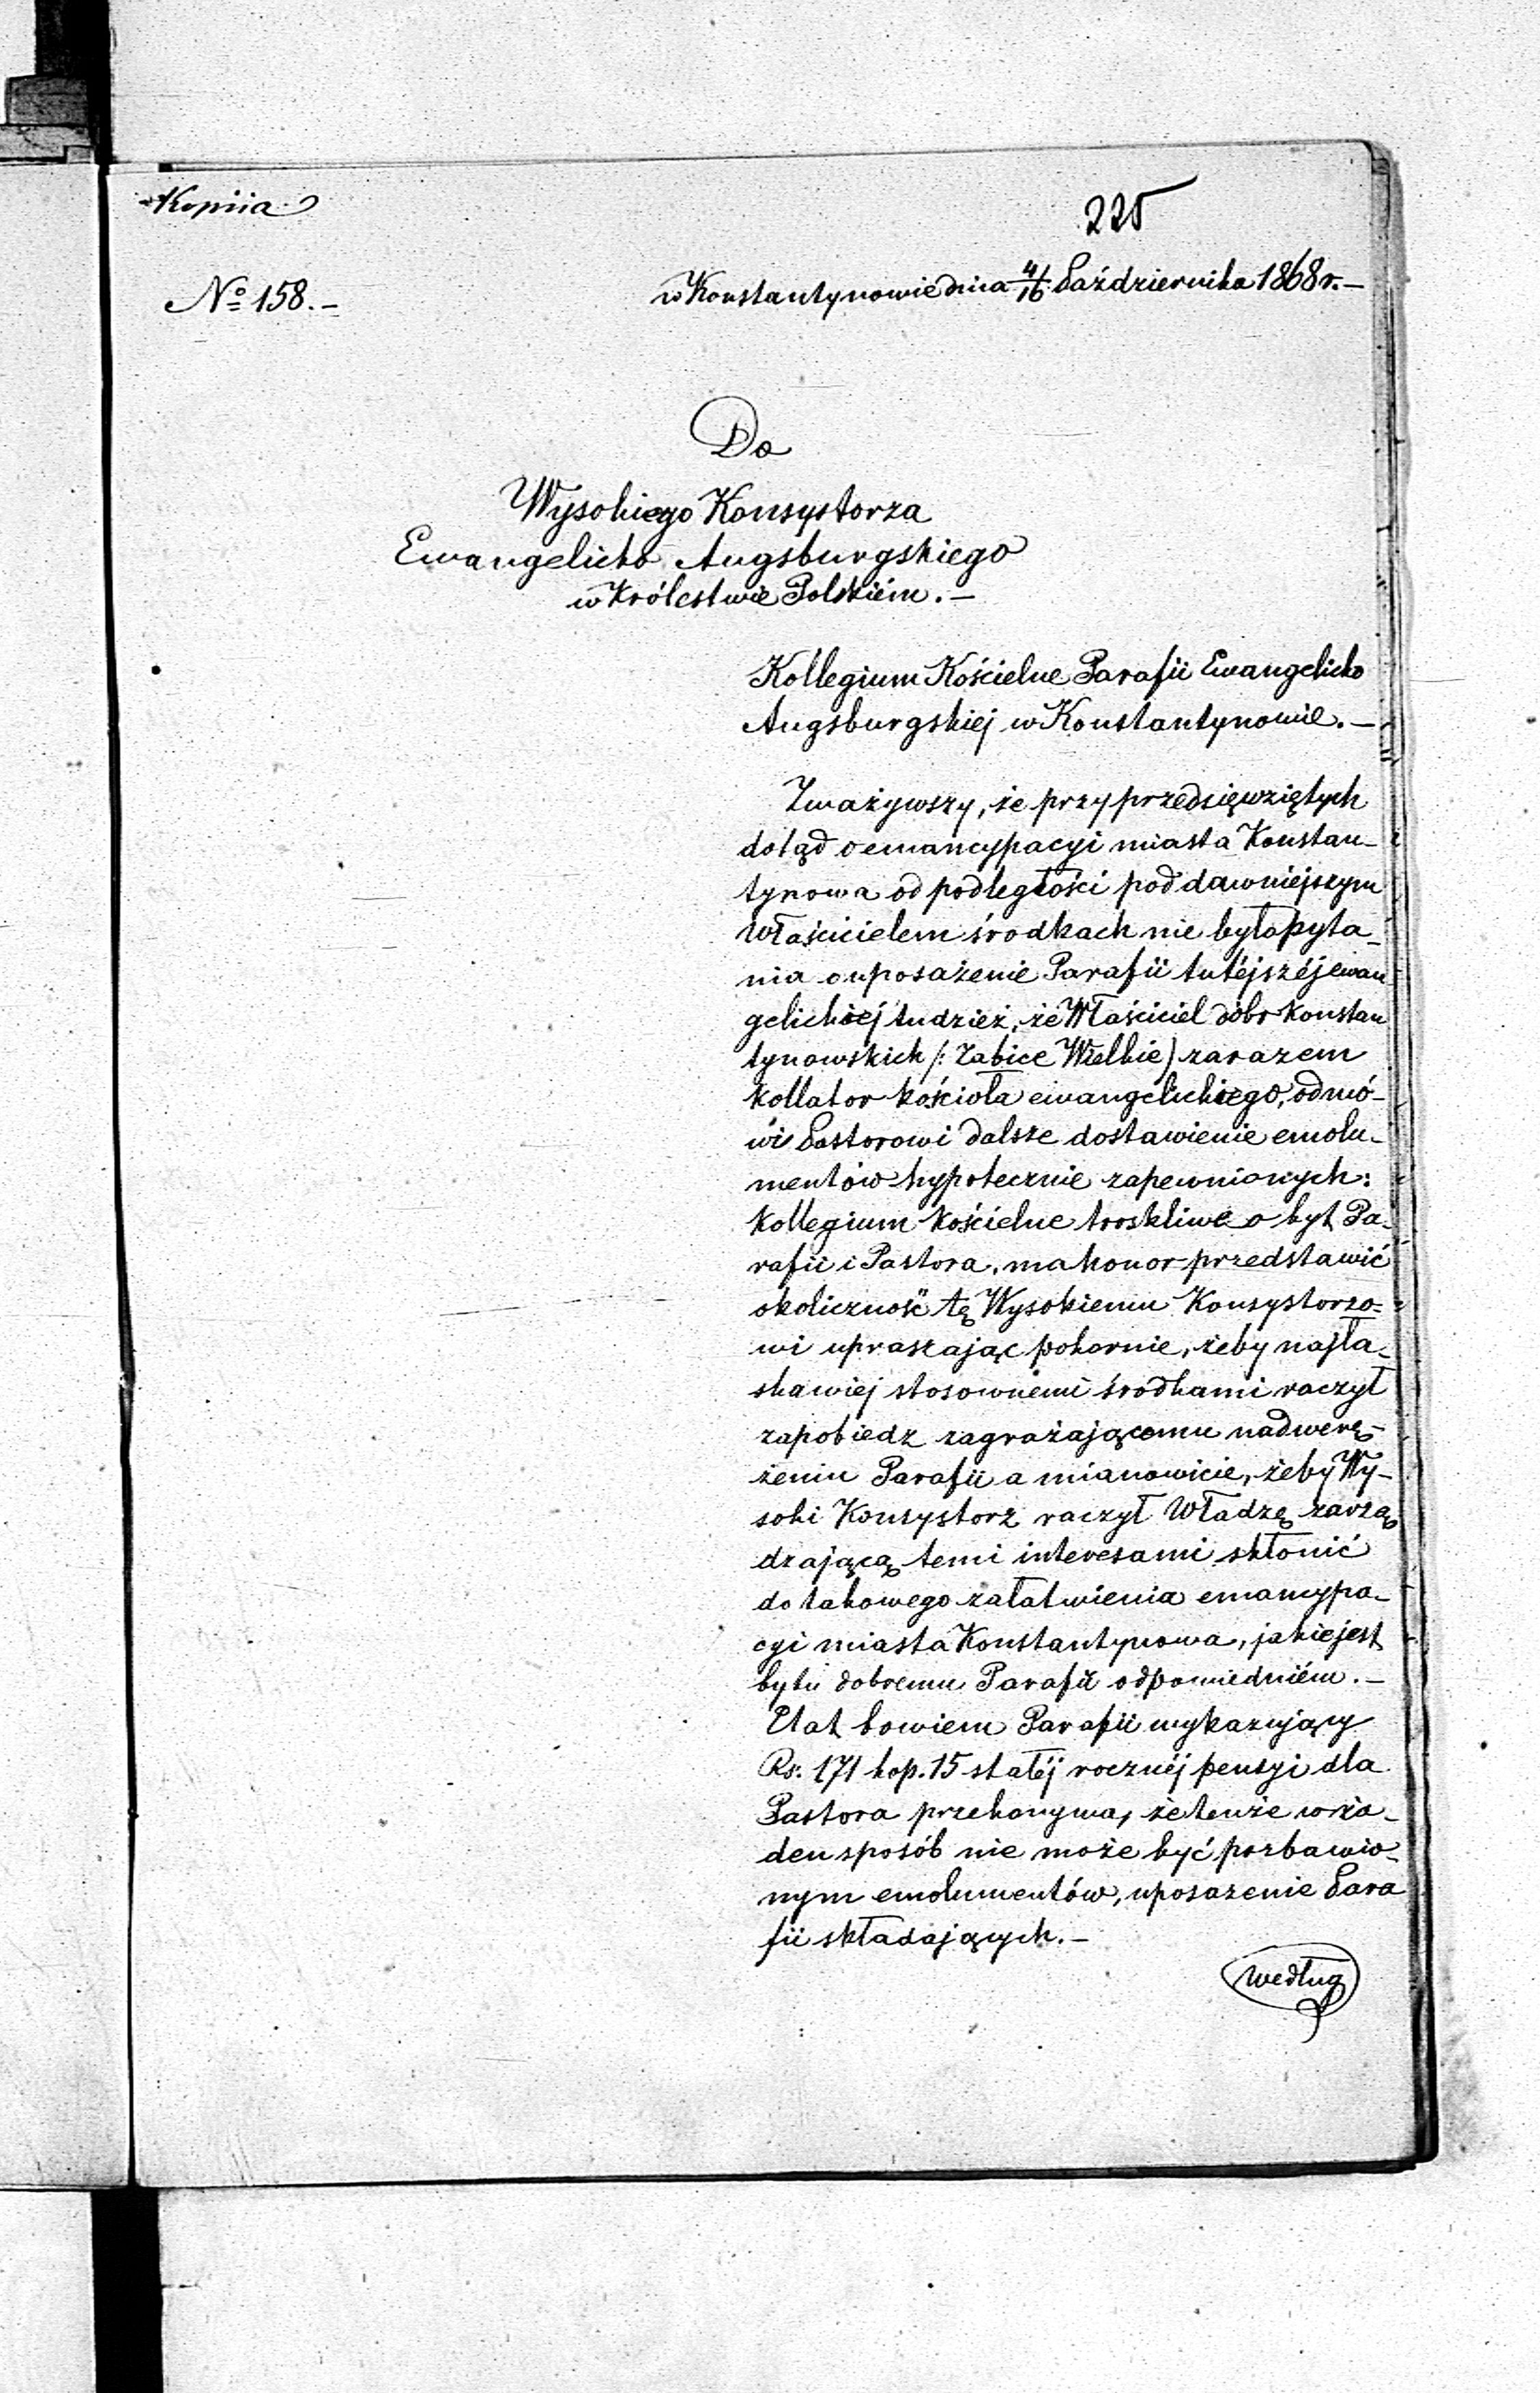 Kopiia
225
№ 158.-
w Konstantynowie dnia 4/16 Października 1868 r.-
Do
Wysokiego Konsystorza
Ewangelicko Augsburgskiego
w Królestwie Polskiém.-
Kollegium Kościelne Parafii Ewangelicko
Augsburgskiej w Konstantynowie.-
Zważywszy, że przy przedsięwziętych
dotąd o emancypacyi miasta Konstan-
tynowa od podległości pod dawniejszym
Właścicielem środkach nie było pyta-
nia o uposażenie Parafii tutéjszéj ewan
gelickiej tudzież, że Właściciel dóbr Konstan
tynowskich /: Żabice Wielkie) zarazem
kollator kościoła ewangelickiego, odmó-
wi Pastorowi dalsze dostawienie emolu-
mentów hypotecznie zapewnionych:
Kollegium kościelne troskliwe o byt Pa-
rafii i Pastora, ma honor przedstawić
okoliczność tę Wysokiemu Konsystorzo-
wi upraszając pokornie, żeby najła-
skawiej stosownemi środkami raczył
zapobiedz zagrażającemu nadwerę-
żeniu Parafii a mianowicie, żeby Wy-
soki Konsystorz raczył Władzę zarzą
dzającą temi interesami skłonić
do takowego załatwienia emancypa-
cyi miasta Konstantynowa, jakie jest
bytu dobremu Parafii odpowiedniém.-
Etat bowiem Parafii wykazujący
Rs. 171 kop. 15 stałéj rocznéj pensyi dla
Pastora przekonywa, że tenże w ża-
den sposób nie może być pozbawio-
nym emolumentów, uposazenie Para
fii składających.-
według